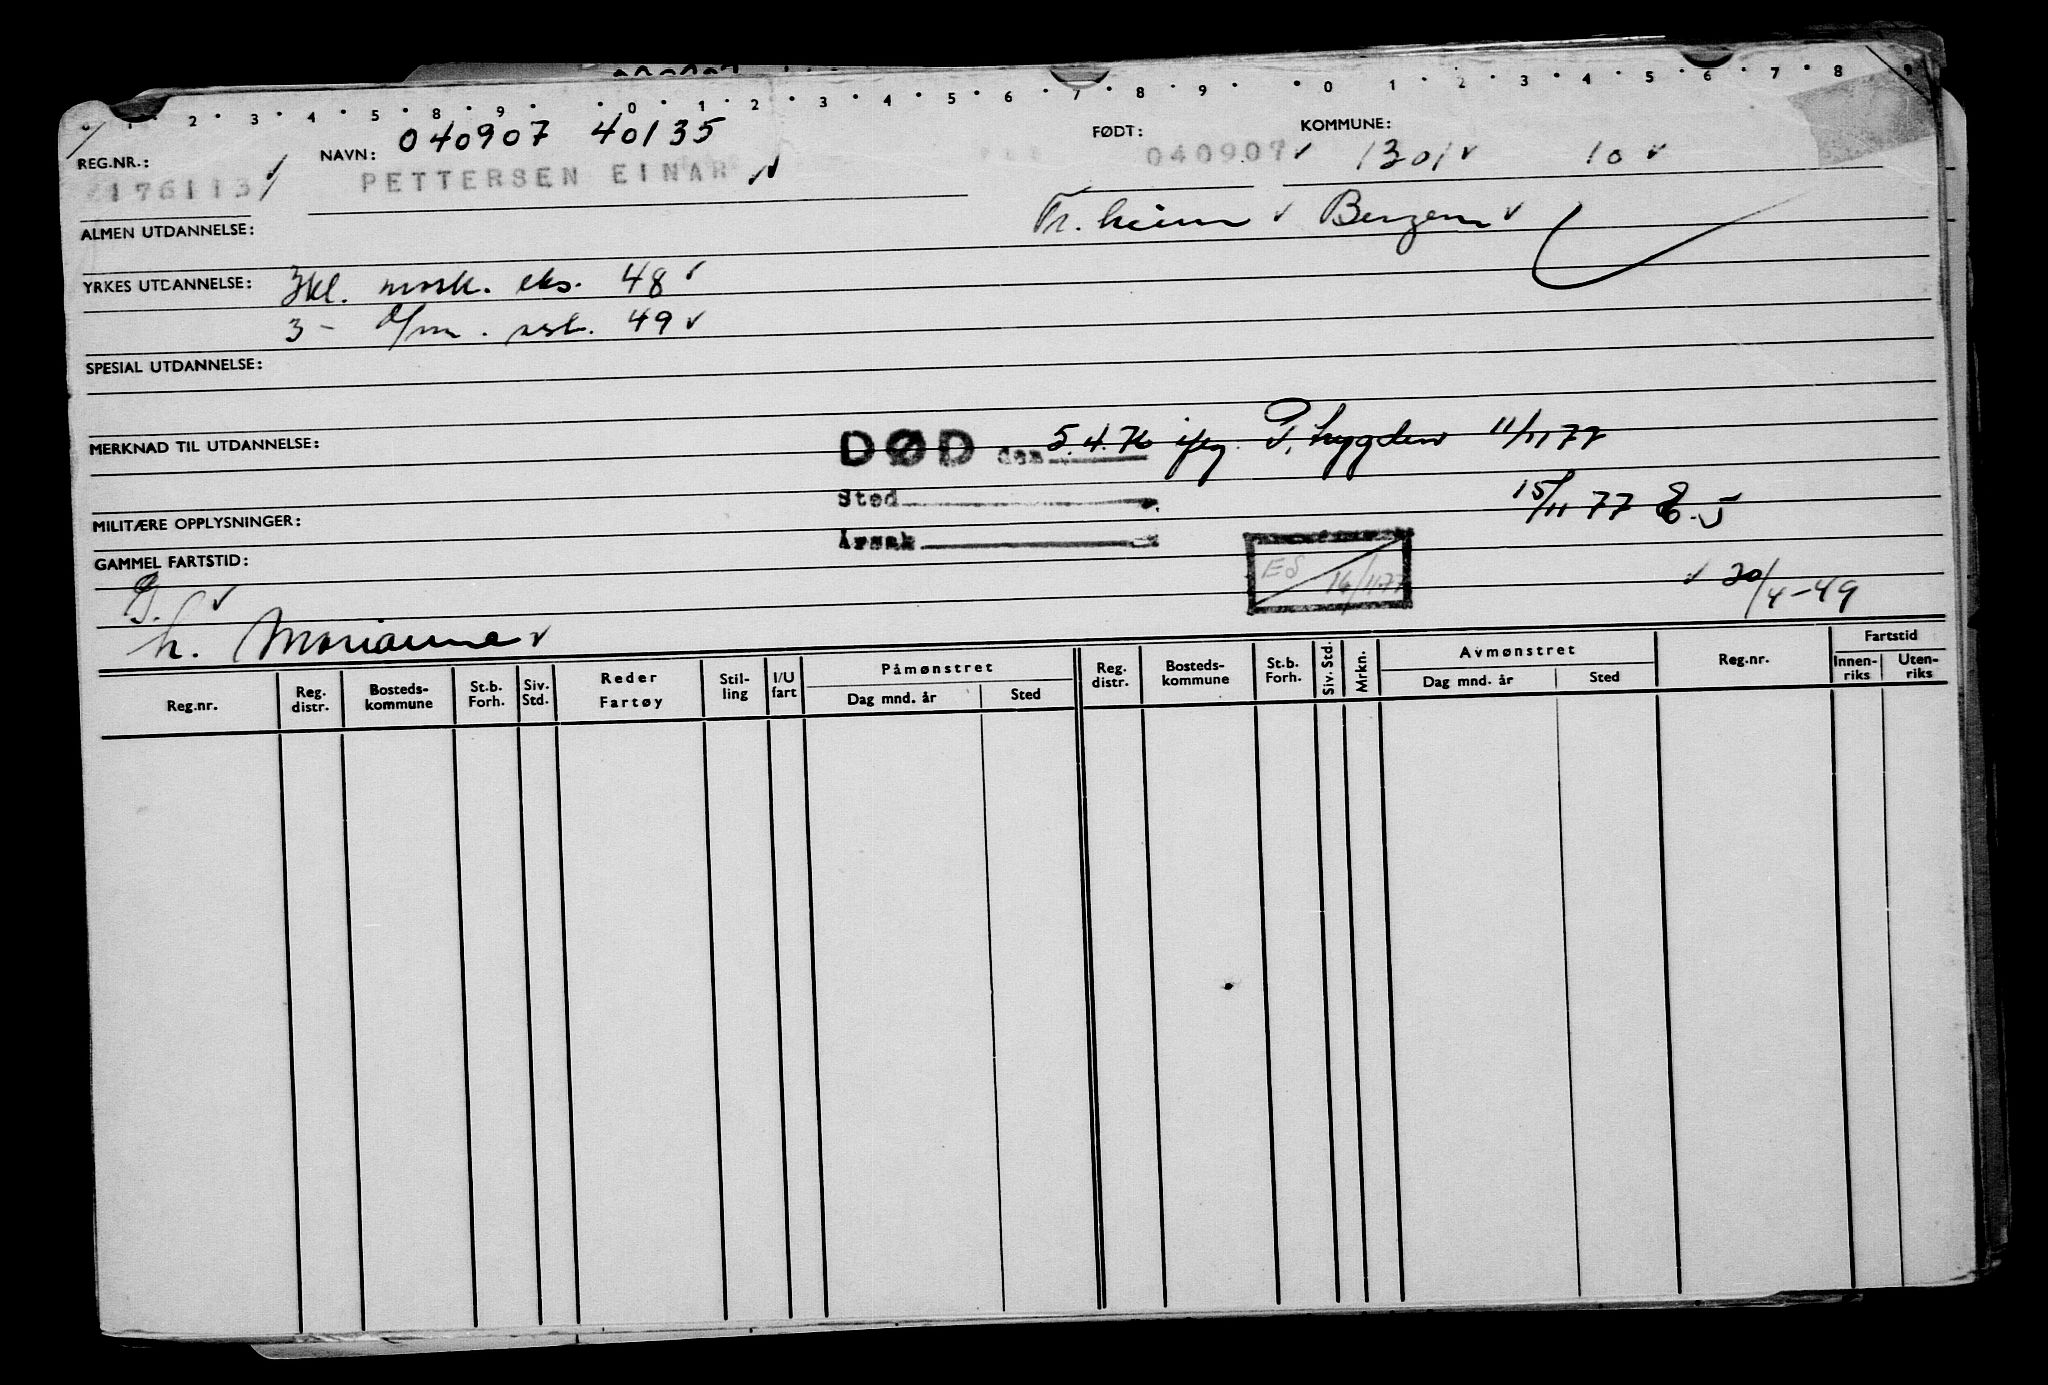 1 2 3 4 5 8 9 0 1 2 3 4 5 6 7 8 9 0 1 2 3 4 5 6 7 8 9
040907 40135
REG.NR.: NAVN: FØDT: KOMMUNE:
176113 PETTERSEN EINAR 040907 1301 10
ALMEN UTDANNELSE: Tr.heim Bergen
YRKES UTDANNELSE: 3kl. mask. eks. 48
3 - 49
SPESIAL UTDANNELSE:
MERKNAD TIL UTDANNELSE: DØD den 5.4.76 iflg. P. trygden 11/11 77
Sted 15/11 77
MILITÆRE OPPLYSNINGER: Årsak
GAMMEL FARTSTID: 16/11-77
G. 20/4-49
h. Marianne
Reg.nr. Reg. distr. Bosteds-kommune St.b. Forh. Siv. Std. Reder Fartøy Stil-ling I/U fart Påmønstret Dag mnd. år Sted Reg. distr. Bosteds-kommune St.b. Forh. Siv. Std. Mrkn. Avmønstret Dag mnd. år Sted Reg.nr. Fartstid Innen-riks Uten-riks